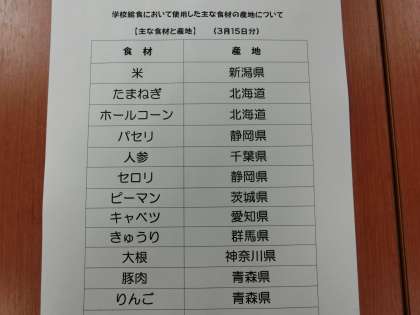 学校給食において使用した主な食材の産地について
【主な食材と産地】 (3月15日分)
食材 産地
米 新潟県
たまねぎ 北海道
ホールコーン 北海道
パセリ 静岡県
人参 千葉県
セロリ 静岡県
ピーマン 茨城県
キャベツ 愛知県
きゅうり 群馬県
大根 神奈川県
豚肉 青森県
りんご 青森県